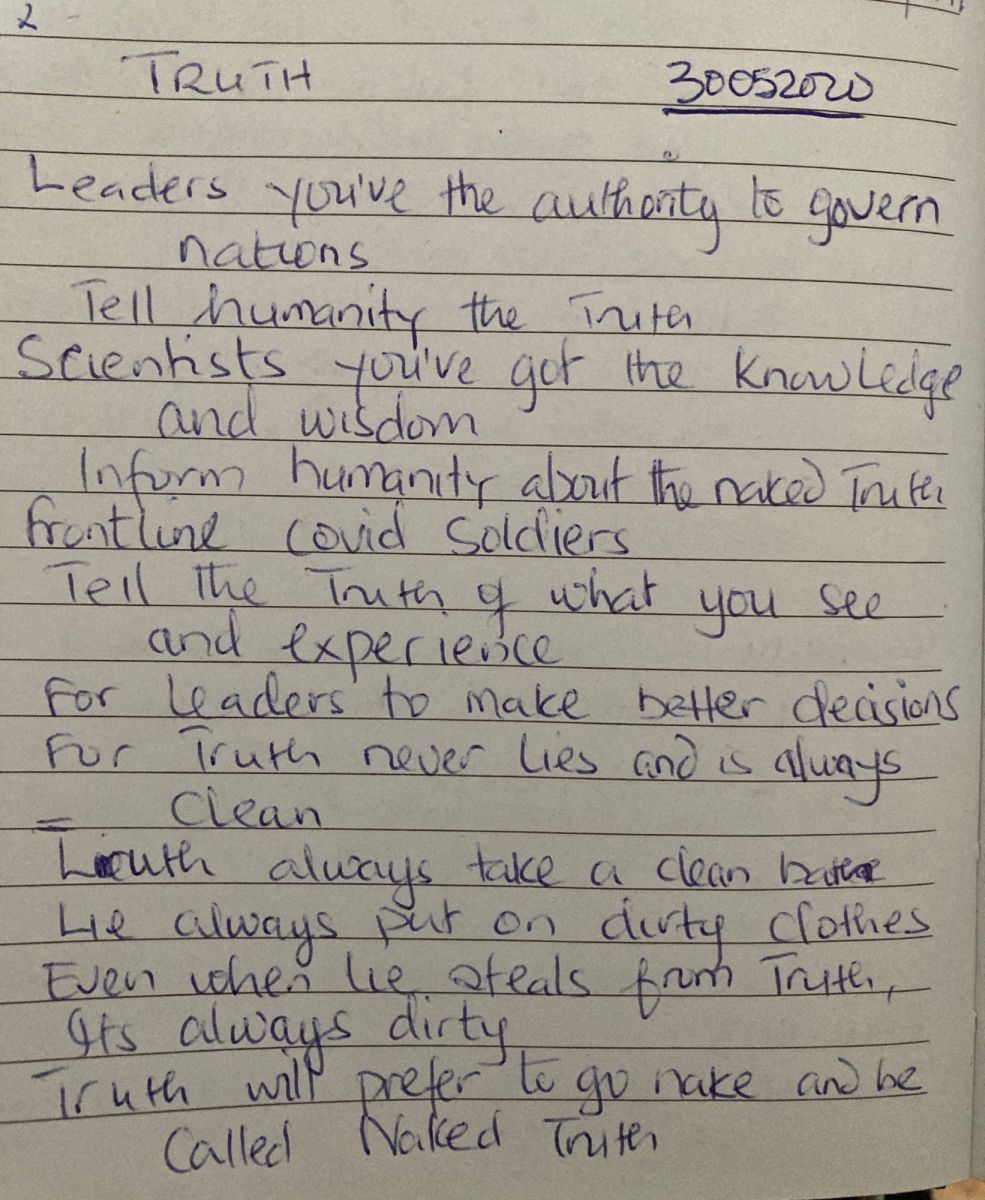 2
TRUTH 30052020
Leaders you've the authority to govern
nations
Tell humanity the Truth
Scientists you've got the knowledge
and wisdom
Inform humanity about the naked Truth
frontline covid soldiers
Tell the Truth of what you see
and experience
For leaders to make better decisions
For Truth never lies and is always
= Clean
always take a clean
Lie always put on dirty clothes
Even when lie steals from Truth,
Its always dirty
Truth will prefer to go nake and be
Called Naked Truth